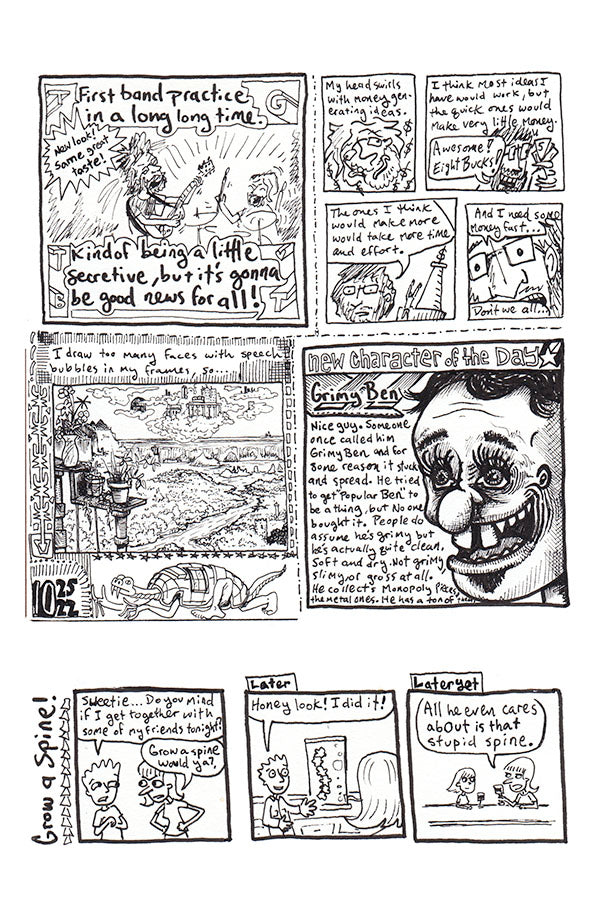 First band practice
in a long long time.
Now look!
Same great
taste!
Kind of being a little
secretive, but it's gonna
be good news for all!
My head swirls
with money gen-
erating ideas.
I think most ideas I
have would work, but
the quick ones would
make very little money.
Awesome!
Eight Bucks!
The ones I think
would make more
would take more time
and effort.
And I need some
money fast...
Don't we all...
I draw too many faces with speech
bubbles in my frames, so...
10 25
22
new character of the Day
Grimy Ben
Nice guy. Someone
once called him
Grimy Ben and for
some reason it stuck
and spread. He tried
to get "Popular Ben" to
be a thing, but no one
bought it. People do
assume he's grimy but
he's actually quite clean.
Soft and dry. Not grimy
slimy, or gross at all.
He collects Monopoly Pieces,
the metal ones. He has a ton of
Grow a Spine!
Sweetie... Do you mind
if I get together with
some of my friends tonight?
Grow a spine
would ya?
Later
Honey look! I did it!
Later yet
All he even cares
about is that
stupid spine.